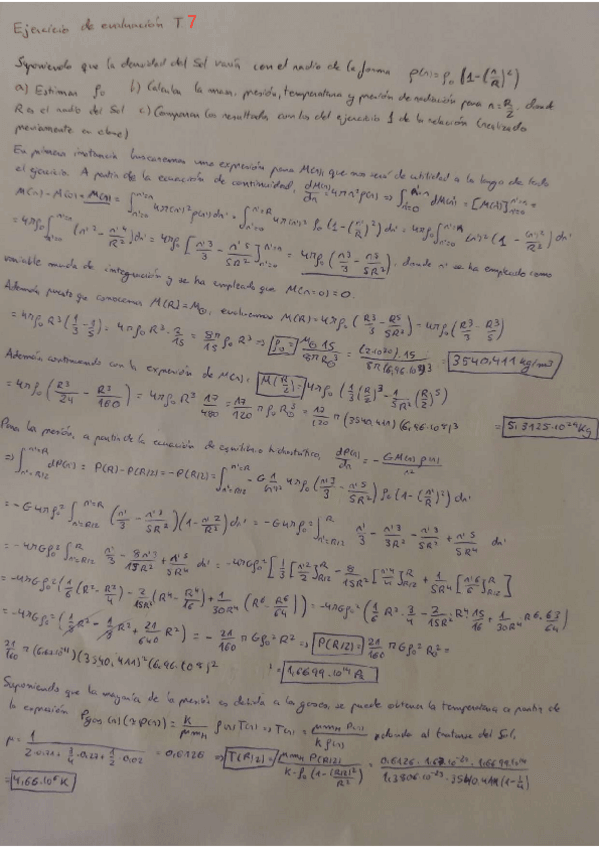 Ejercicio de evaluación T 7
Suponiendo que la densidad del Sol varía con el radio de la forma ρ(r)=ρ₀(1-(r/R)²)
a) Estimar ρ₀ b) Calcular la masa, presión, temperatura y presión de radiación para r=R/2, donde
R es el radio del Sol c) Comparar los resultados con los del ejercicio 1 de la relación (realizado
previamente en clase)
En primera instancia buscaremos una expresión para M(r), que nos será de utilidad a lo largo de todo
el ejercicio. A partir de la ecuación de continuidad, dM(r)/dr = 4πr²ρ(r) ⇒ ∫_{r'=0}^{r'=r} dM(r) = [M(r)]_{r'=0}^{r'=r} =
M(r) - M(0) = M(r) = ∫_{r'=0}^{r'=r} 4π(r')²ρ(r')dr' = ∫_{r'=0}^{r'=R} 4π(r')² ρ₀(1-(r'/R)²)dr' = 4πρ₀∫_{r'=0}^{r'=r} (r')²(1-(r')²/R²)dr'
= 4πρ₀∫_{r'=0}^{r'=r} (r'² - r'⁴/R²)dr' = 4πρ₀[r'³/3 - r'⁵/5R²]_{r'=0}^{r'=r} = 4πρ₀(r³/3 - r⁵/5R²), donde r' se ha empleado como
variable muda de integración y se ha empleado que M(r=0)=0.
Además puesto que conocemos M(R)=M⊙, evaluemos M(R)=4πρ₀(R³/3 - R⁵/5R²)=4πρ₀(R³/3 - R³/5)
= 4πρ₀R³(1/3 - 1/5) = 4πρ₀R³·2/15 = 8π/15 ρ₀R³ ⇒ ρ₀ = M⊙ 15/8πR⊙³ = (2·10³⁰)·15/8π(6,96·10⁸)³ = 3540,411 kg/m³
Además continuando con la expresión de M(r): M(R/2) = 4πρ₀(1/3(R/2)³ - 1/5R²(R/2)⁵)
= 4πρ₀(R³/24 - R³/160) = 4πρ₀R³ 17/480 = 17/120 πρ₀R⊙³ = 17/120 π(3540,411)(6,96·10⁸)³ = 5,3125·10²⁹ Kg
Para la presión, a partir de la ecuación de equilibrio hidrostático, dP(r)/dr = -GM(r)ρ(r)/r²
⇒ ∫_{r'=R/2}^{r'=R} dP(r) = P(R)-P(R/2) = -P(R/2) = ∫_{r'=R/2}^{r'=R} -G 1/(r')² 4πρ₀(r'³/3 - r'⁵/5R²) ρ₀(1-(r'/R)²)dr'
= -G4πρ₀² ∫_{r'=R/2}^{r'=R} (r'/3 - r'³/5R²)(1-r'²/R²)dr' = -G4πρ₀² ∫_{r'=R/2}^{r'=R} r'/3 - r'³/3R² - r'³/5R² + r'⁵/5R⁴ dr'
= -4πGρ₀² ∫_{r'=R/2}^{R} r'/3 - 8r'³/15R² + r'⁵/5R⁴ dr' = -4πGρ₀² [1/3[r'²/2]_{R/2}^{R} - 8/15R²[r'⁴/4]_{R/2}^{R} + 1/5R⁴[r'⁶/6]_{R/2}^{R}]
= -4πGρ₀²(1/6(R²-R²/4) - 2/15R²(R⁴-R⁴/16) + 1/30R⁴(R⁶-R⁶/64)) = -4πGρ₀²(1/6 R²·3/4 - 2/15R² R⁴ 15/16 + 1/30R⁴ R⁶·63/64)
= -4πGρ₀²(1/8 R² - 1/8 R² + 21/640 R²) = -21/160 πGρ₀²R² ⇒ P(R/2) = 21/160 πGρ₀²R⊙² =
21/160 π(6,67·10⁻¹¹)(3540,411)²(6,96·10⁸)² = 1,6699·10¹⁴ Pa
Suponiendo que la mayoría de la presión es debida a los gases, se puede obtener la temperatura a partir de
la expresión Pgas(r)≈P(r) = K/μmH ρ(r)T(r) ⇒ T(r) = μmH P(r)/Kρ(r), al tratarse del Sol,
μ = 1/(2·0.71+3/4·0.27+1/2·0.02) = 0,6126 ⇒ T(R/2) = μmH P(R/2)/K·ρ₀(1-(R/2)²/R²) = 0,6126·1,67·10⁻²⁷·1,6699·10¹⁴/1,3806·10⁻²³·3540,411(1-1/4)
= 4,66·10⁶ K